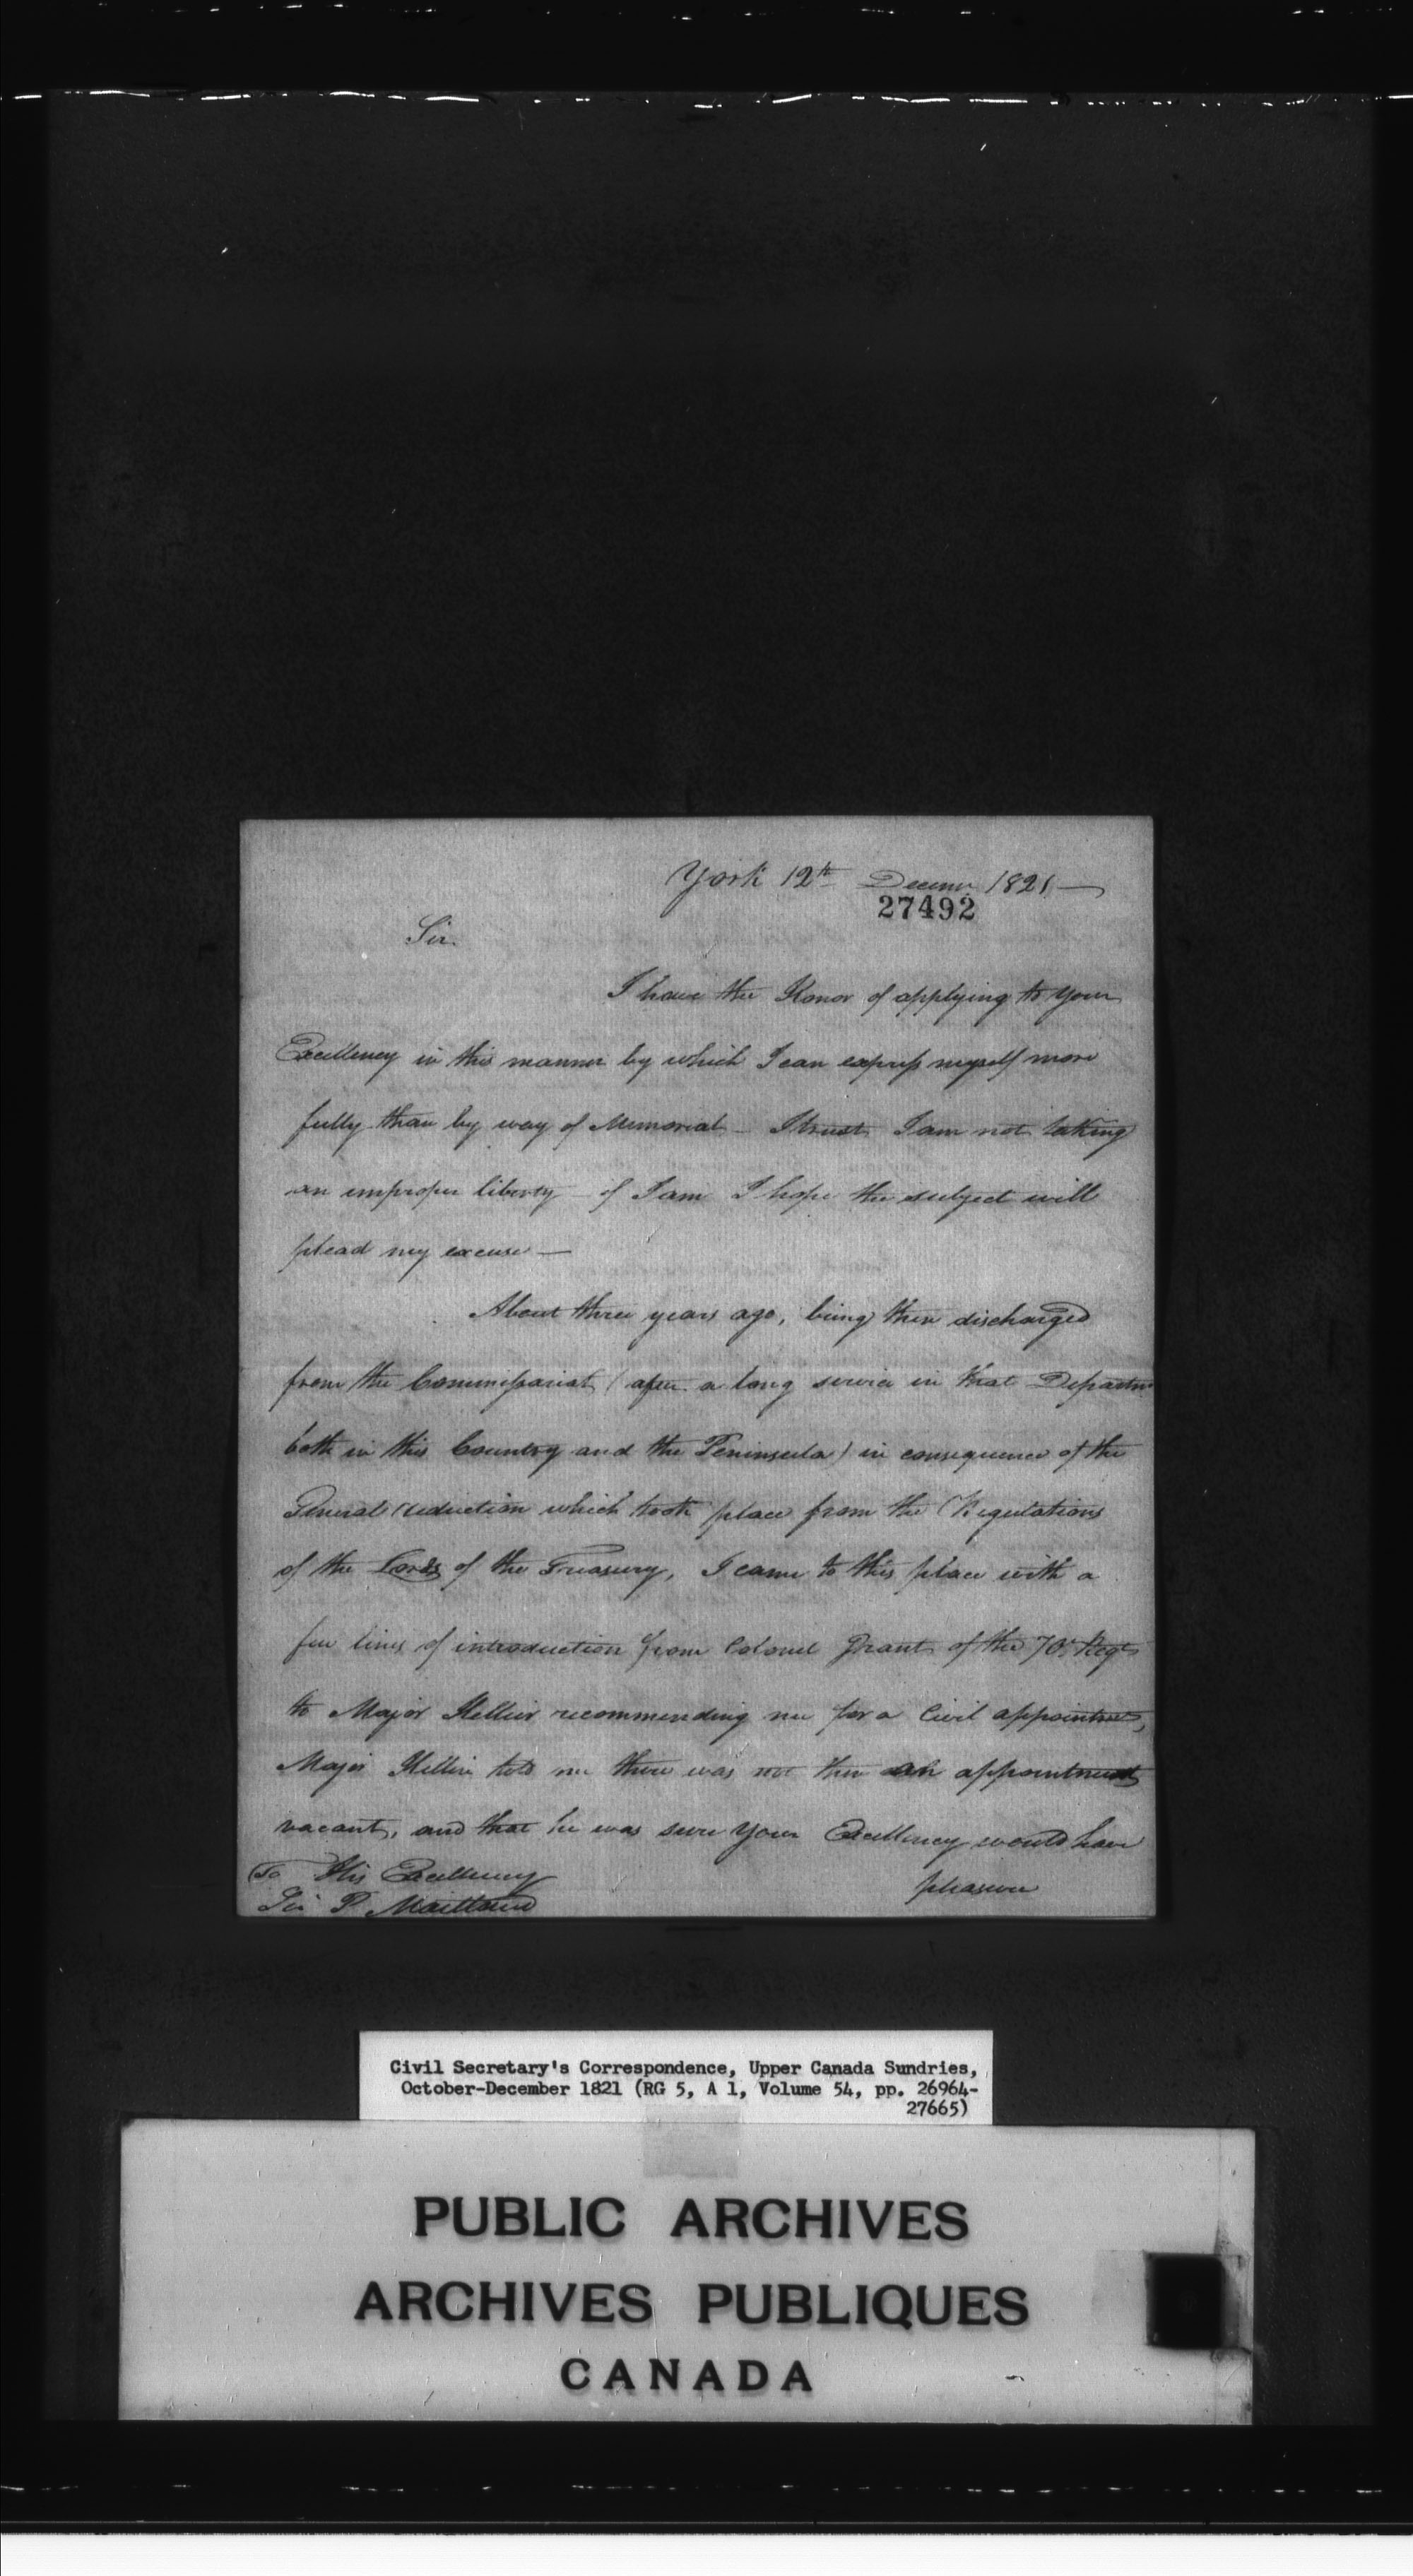 York 12th Decemr 1821 —
27492
Sir.
I have the Honor of applying to Your
Excellency in this manner by which I can express myself more
fully than by way of Memorial - I trust I am not taking
an improper liberty - if I am I hope the subject will
plead my excuse —
About three years ago, being then discharged
from the Commissariat (after a long service in that Departmt
both in this Country and the Peninsula) in consequence of the
General reduction which took place from the Regulations
of the Lords of the Treasury, I came to this place with a
few lines of introduction from Colonel Grant of the 70th Regt
to Major Hellier recommending me for a Civil appointmt,
Major Hillier told me there was not then an appointment
vacant, and that he was sure Your Excellency would have
pleasure
To His Excellency
Sir P Maitland
Civil Secretary's Correspondence, Upper Canada Sundries,
October-December 1821 (RG 5, A 1, Volume 54, pp. 26964-
27665)
PUBLIC ARCHIVES
ARCHIVES PUBLIQUES
CANADA